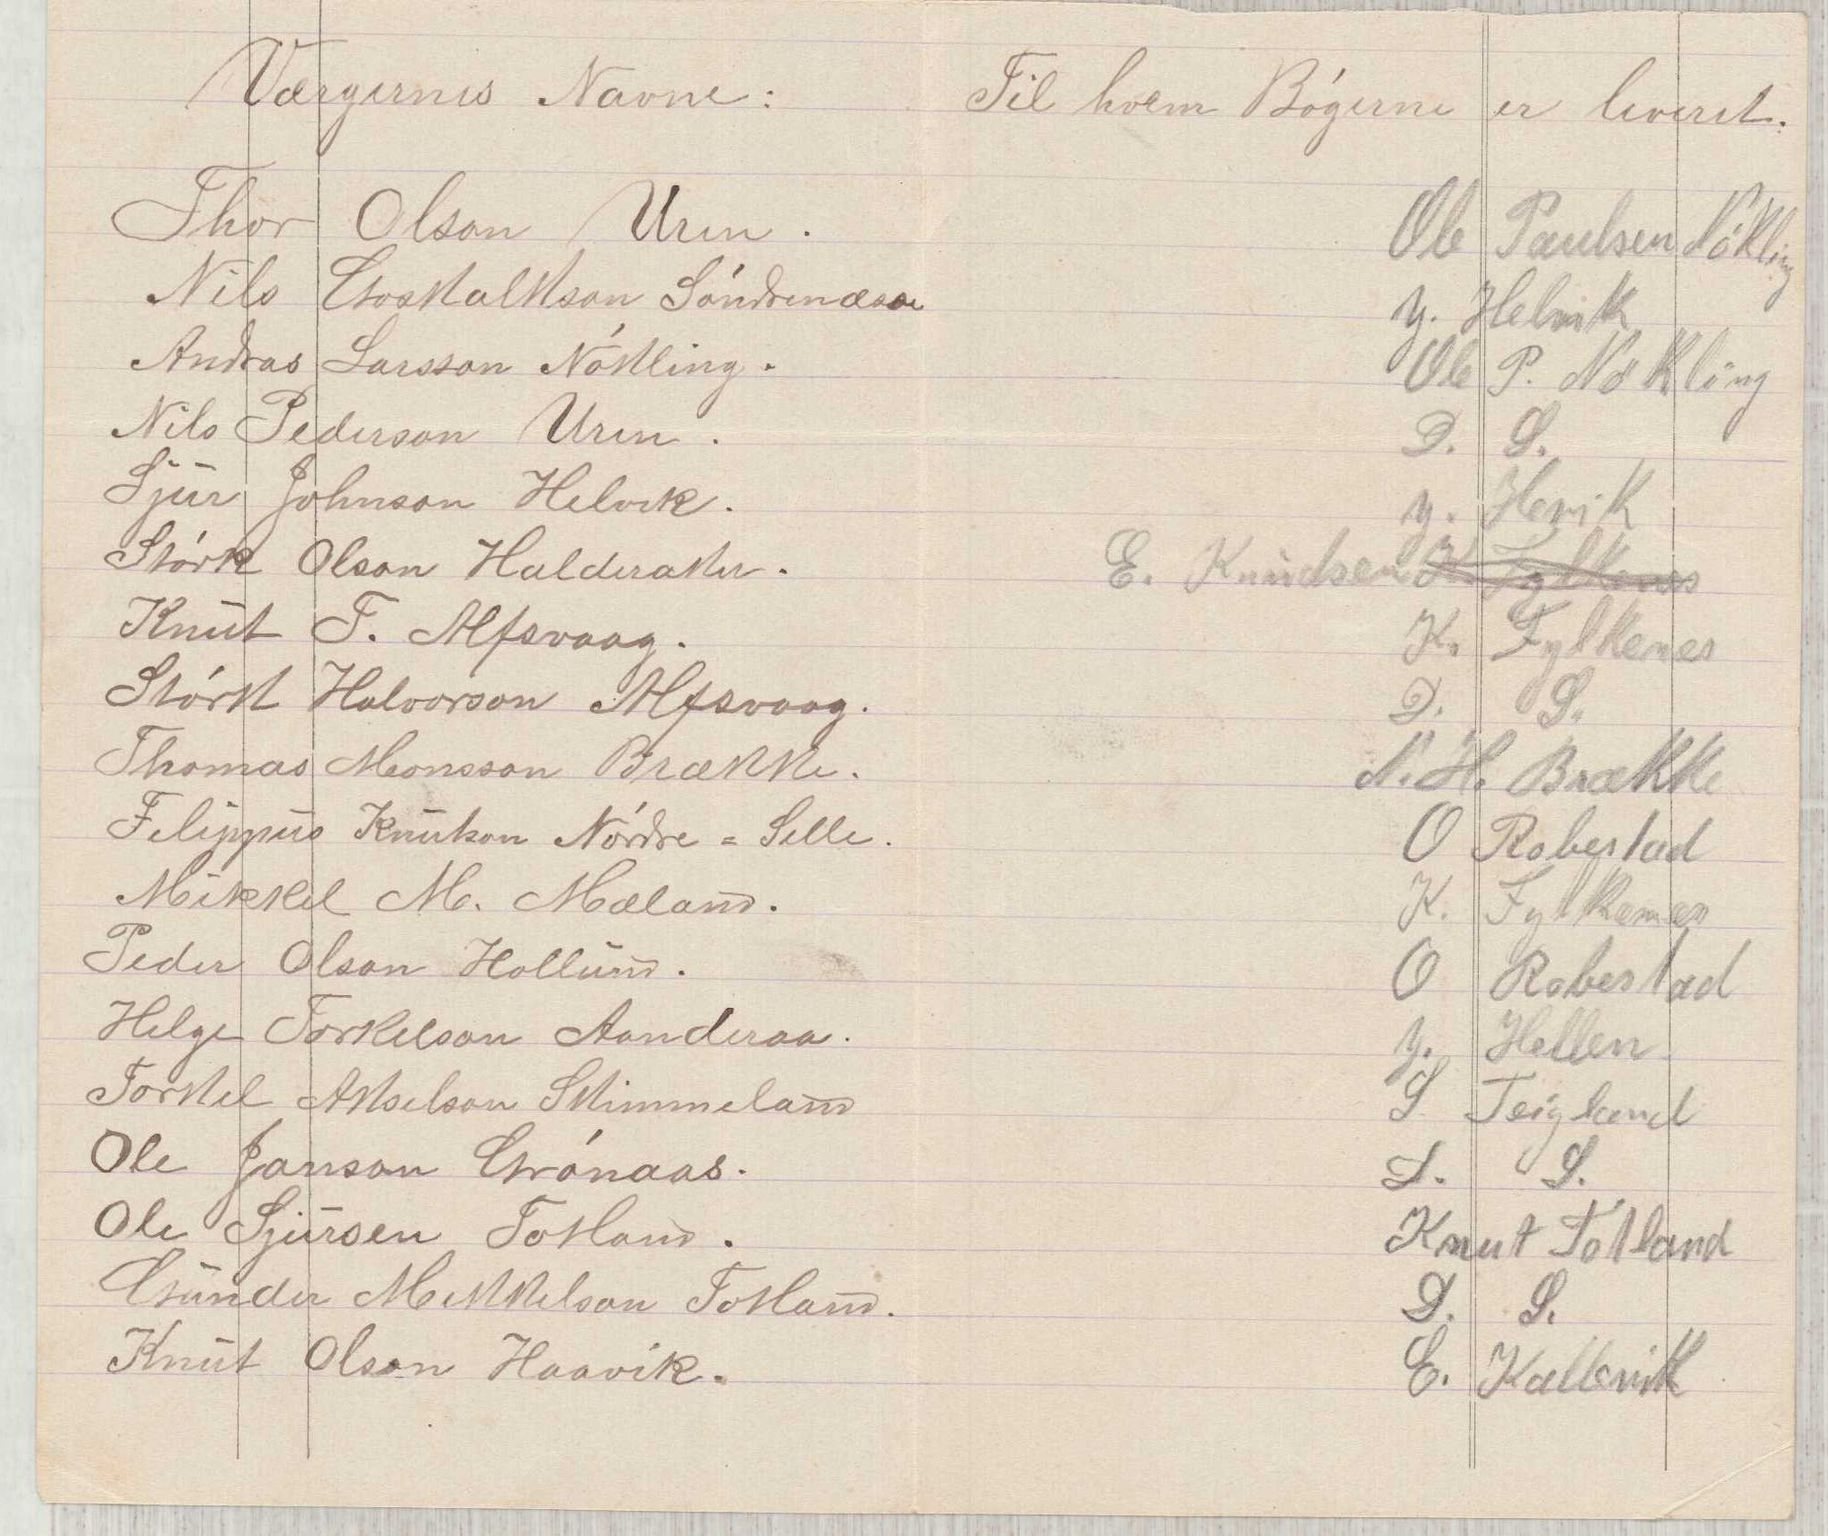 Værgernes Navne: Til hvem Bógerne er leveret.
Thor Olson Uren. Ole Paulsen Nökling
Nils Goskalkson Sóndrenæsse y. Helvik
Andras Larsson Nókling. Ole P. Nökling
Nils Pederson Uren. D. S.
Sjur Johnson Helvik. y. Hevik
Stórk Olson Halderaker. E. Knudsen K. Fylkenes
Knut T. Alfsvaag. K. Fylkenes
Stórk Halvorson Alfsvaag. D. S.
Thomas Monsson Brække. N. H. Brække
Filippus Knutson Nórdre = Selle. O Robestad
Mikkel M. Mæland. K. Fylkenes
Peder Olson Hollund. O Robestad
Helge Torkelson Aanderaa. y. Hellen
Torkel Akselson Skimmeland S Teigland
Ole Janson Grónaas. D. S.
Ole Sjursen Totland. Knut Totland
Gunder Mekkelson Totland. D. S.
Knut Olson Haavik. E. Kallevik